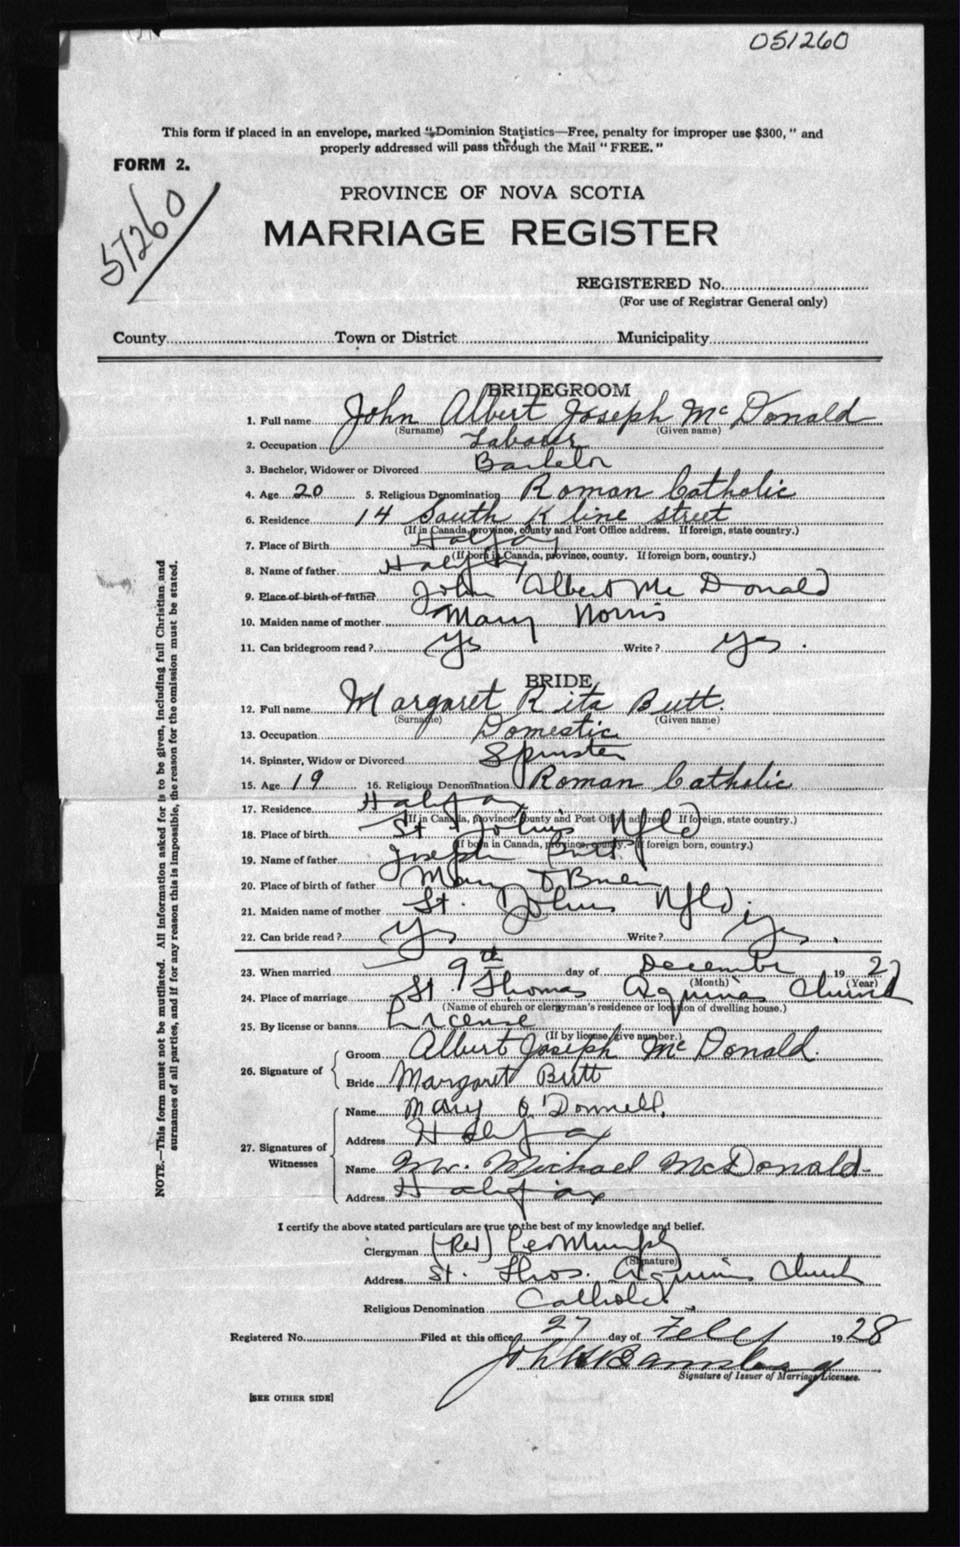 051260
This form if placed in an envelope, marked "Dominion Statistics—Free, penalty for improper use $300," and
properly addressed will pass through the Mail "FREE."
FORM 2.
57260
PROVINCE OF NOVA SCOTIA
MARRIAGE REGISTER
REGISTERED No.
(For use of Registrar General only)
County Town or District Municipality
BRIDEGROOM
1. Full name John Albert Joseph McDonald
(Surname) (Given name)
2. Occupation Laborer
3. Bachelor, Widower or Divorced Bachelor
4. Age 20 5. Religious Denomination Roman Catholic
6. Residence 14 South Kline street
(If in Canada, province, county and Post Office address. If foreign, state country.)
7. Place of Birth Halifax
(If born in Canada, province, county. If foreign born, country.)
8. Name of father Halifax
9. Place of birth of father John Albert Mc Donald
10. Maiden name of mother Mary Norris
11. Can bridegroom read? Yes Write? Yes.
BRIDE
12. Full name Margaret Rita Butt.
(Surname) (Given name)
13. Occupation Domestic
14. Spinster, Widow or Divorced Spinster
15. Age 19 16. Religious Denomination Roman Catholic
17. Residence Halifax
(If in Canada, province, county and Post Office address. If foreign, state country.)
18. Place of birth St. John's Nfld
(If born in Canada, province, county. If foreign born, country.)
19. Name of father Joseph Butt
20. Place of birth of father Mary O'Brien
21. Maiden name of mother St. Johns Nfld.
22. Can bride read? Yes Write? Yes.
23. When married 9th day of December 1927
(Month) (Year)
24. Place of marriage St. Thomas Aquinas Church
(Name of church or clergyman's residence or location of dwelling house.)
25. By license or banns License
(If by license, give number.)
26. Signature of Groom Albert Joseph McDonald.
Bride Margaret Butt
27. Signatures of Witnesses Name Mary O'Donnell.
Address Halifax
Name Mr. Michael McDonald
Address Halifax
I certify the above stated particulars are true to the best of my knowledge and belief.
Clergyman (Rev) Leo Murphy
(Signature)
Address St. Thos. Aquinas Church
Religious Denomination Catholic
Registered No. Filed at this office 27 day of 1928
Signature of Issuer of Marriage Licenses.
[SEE OTHER SIDE]
NOTE.—This form must not be mutilated. All information asked for is to be given, including full Christian and
surnames of all parties, and if for any reason this is impossible, the reason for the omission must be stated.